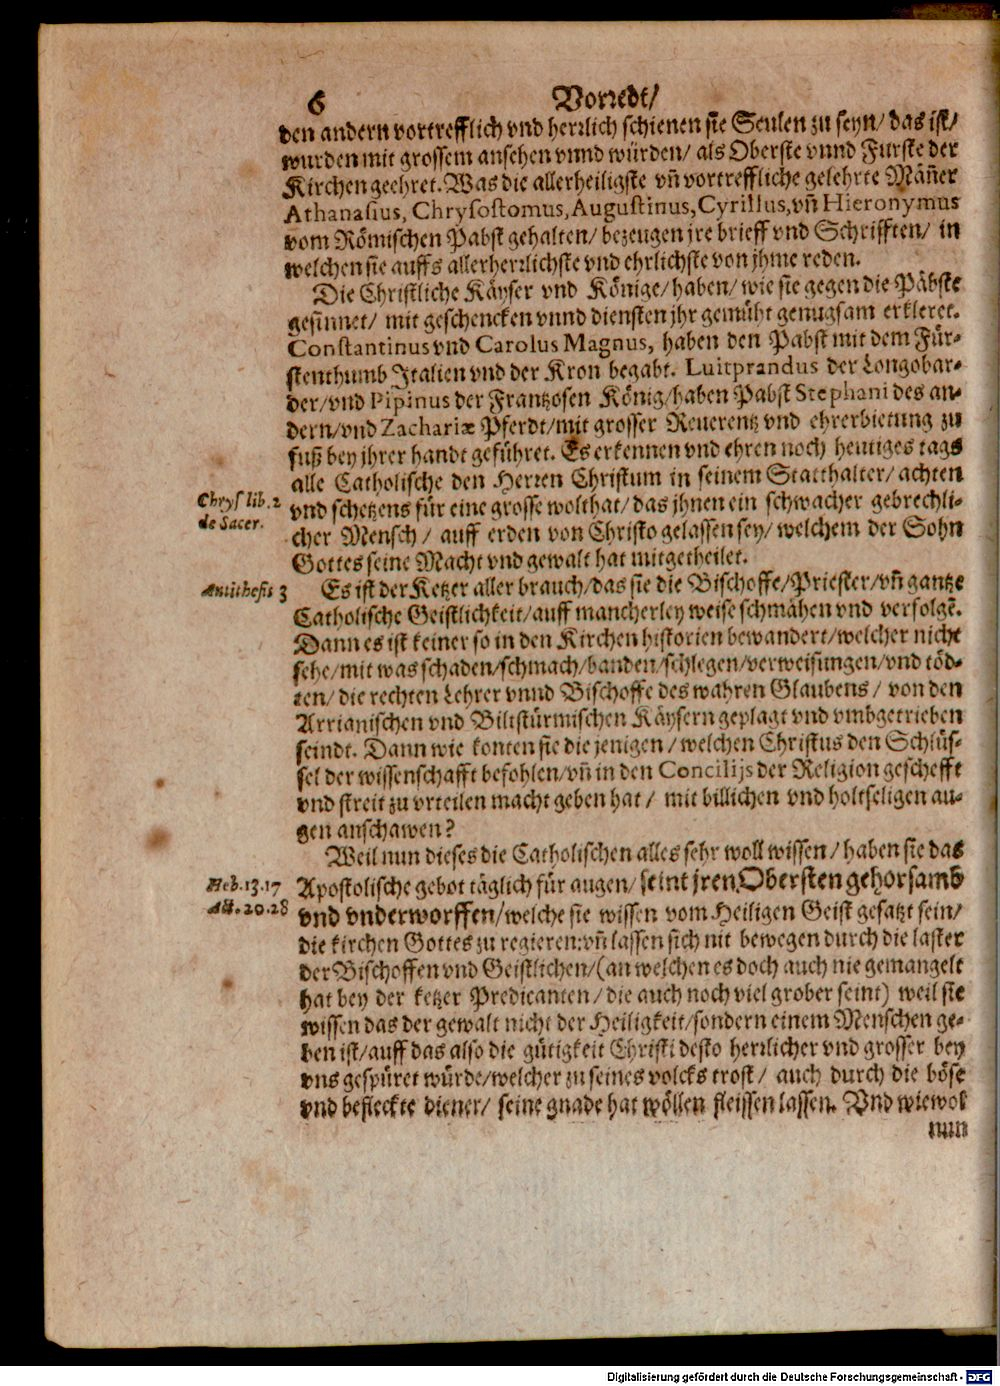 6 Vorredt/
den andern vortrefflich vnd herrlich schienen sie Seulen zu seyn/ das ist/
wurden mit grossem ansehen vnnd würden/ als Oberste vnnd Furste der
Kirchen geehret. Was die allerheiligste vñ vortreffliche gelehrte Mäñer
Athanasius, Chrysostomus, Augustinus, Cyrillus, vñ Hieronymus
vom Römischen Pabst gehalten/ bezeugen jre brieff vnd Schrifften/ in
welchen sie auffs allerherrlichste vnd ehrlichste von jhme reden.
Die Christliche Käyser vnd Könige/ haben/ wie sie gegen die Päbste
gesinnet/ mit geschencken vnnd diensten jhr gemüht genugsam erkleret.
Constantinus vnd Carolus Magnus, haben den Pabst mit dem Für-
stenthumb Italien vnd der Kron begabt. Luitprandus der Longobar-
der/ vnd Pipinus der Frantzosen König/ haben Pabst Stephani des an-
dern/ vnd Zachariæ Pferdt/ mit grosser Reuerentz vnd ehrerbietung zu
fuß bey jhrer handt geführet. Es erkennen vnd ehren noch heutiges tags
alle Catholische den Herren Christum in seinem Statthalter/ achten
Chrys lib. 2
de Sacer.
vnd schetzens für eine grosse wolthat/ das jhnen ein schwacher gebrechli-
cher Mensch/ auff erden von Christo gelassen sey/ welchem der Sohn
Gottes seine Macht vnd gewalt hat mitgetheilet.
Antithesis 3
Es ist der Ketzer aller brauch/ das sie die Bischoffe/ Priester/ vñ gantze
Catholische Geistlichkeit/ auff mancherley weise schmähen vnd verfolgẽ.
Dann es ist keiner so in den Kirchen historien bewandert/ welcher nicht
sehe/ mit was schaden/ schmach/ banden/ schlegen/ verweisungen/ vnd töd-
ten/ die rechten Lehrer vnnd Bischoffe des wahren Glaubens/ von den
Arrianischen vnd Biltstürmischen Käysern geplagt vnd vmbgetrieben
seindt. Dann wie konten sie die jenigen/ welchen Christus den Schlüs-
sel der wissenschafft befohlen/ vñ in den Concilijs der Religion geschefft
vnd streit zu vrteilen macht geben hat/ mit billichen vnd holtseligen au-
gen anschawen?
Weil nun dieses die Catholischen alles sehr woll wissen/ haben sie das
Heb. 13. 17
Act. 20. 28
Apostolische gebot täglich für augen/ seint jren Obersten gehorsamb
vnd vnderworffen/ welche sie wissen vom Heiligen Geist gesatzt sein/
die kirchen Gottes zu regieren: vñ lassen sich nit bewegen durch die laster
der Bischoffen vnd Geistlichen/ (an welchen es doch auch nie gemangelt
hat bey der ketzer Predicanten/ die auch noch viel grober seint) weil sie
wissen das der gewalt nicht der Heiligkeit/ sondern einem Menschen ge-
ben ist/ auff das also die gütigkeit Christi desto herrlicher vnd grosser bey
vns gespüret würde/ welcher zu seines volcks trost/ auch durch die böse
vnd befleckte diener/ seine gnade hat wöllen fleissen lassen. Vnd wiewol
nun
Digitalisierung gefördert durch die Deutsche Forschungsgemeinschaft - DFG